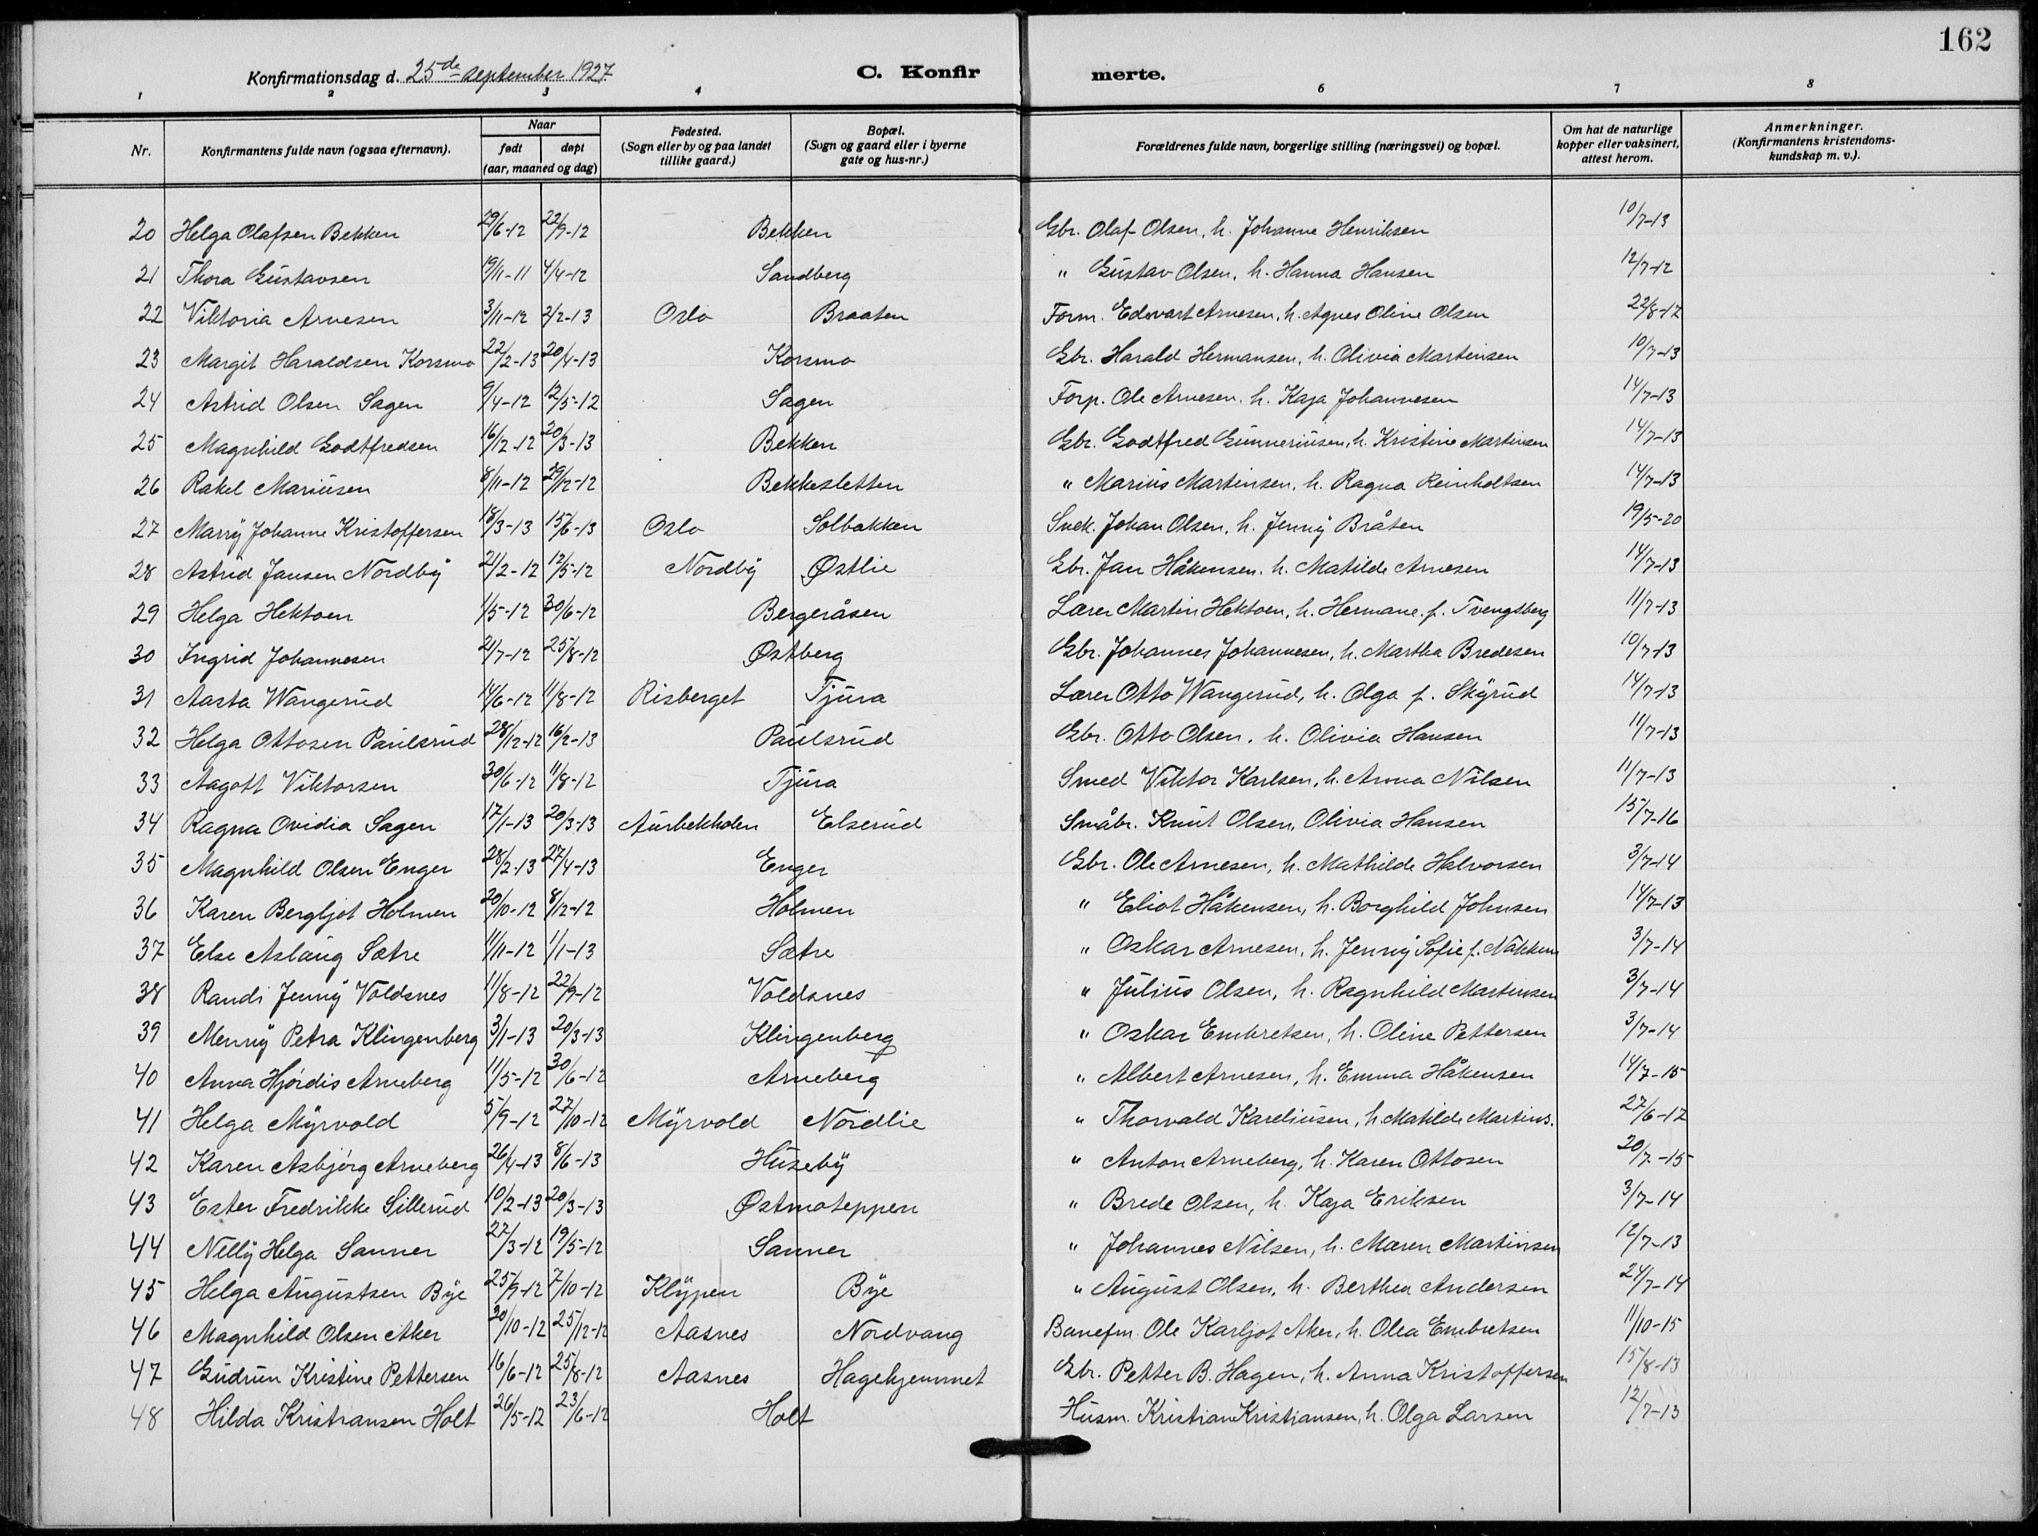 162
Konfirmationsdag d. 25de september 1927 C. Konfirmerte.
1 2 3 4 6 7 8
Nr. Konfirmantens fulde navn (ogsaa efternavn). Naar født døpt (aar, maaned og dag) Fødested. (Sogn eller by og paa landet tillike gaard.) Bopæl. (Sogn og gaard eller i byerne gate og hus-nr.) Forældrenes fulde navn, borgerlige stilling (næringsvei) og bopæl. Om hat de naturlige kopper eller vaksinert, attest herom. Anmerkninger. (Konfirmantens kristendoms-kundskap m. v.).
20 Helga Olafsen Bekken 29/6-12 22/9-12 Bekken Gbr. Olaf Olsen, h. Johanne Henriksen 10/7-13
21 Thora Gustavsen 19/11-11 4/4-12 Sandberg " Gustav Olsen, h. Hanna Hansen 12/7-12
22 Viktoria Arnesen 3/11-12 2/2-13 Oslo Braaten Form. Edvart Arnesen, h. Agnes Oline Olsen 22/8-17
23 Margit Haraldsen Korsmo 22/2-13 20/4-13 Korsmo Gbr. Harald Hermansen, h. Olivia Martinsen 10/7-13
24 Astrid Olsen Sagen 9/4-12 12/5-12 Sagen Forp. Ole Arnesen. h. Kaja Johannesen 14/7-13
25 Magnhild Godtfredsen 16/12-12 20/3-13 Bekken Gbr. Godtfred Gunneriusen, h. Kristine Martinsen 14/7-13
26 Rakel Mariusen 8/11-12 29/12-12 Bekkesletten " Marius Martinsen, h. Ragna Reinholtsen 14/7-13
27 Marrÿ Johanne Kristoffersen 18/3-13 15/6-13 Oslo Solbakken Snek. Johan Olsen, h. Jennÿ Bråten 19/5-20
28 Astrid Jansen Nordbÿ 21/2-12 12/5-12 Nordbÿ Østlie Gbr. Jan Håkensen, h. Matilde Arnesen 14/7-13
29 Helga Hektoen 1/5-12 30/6-12 Bergeråsen Lærer Martin Hektoen, h. Hermane f. Tvengsberg 11/7-13
30 Ingrid Johannesen 21/7-12 25/8-12 Østberg Gbr. Johannes Johannesen, h. Martha Bredesen 10/7-13
31 Aasta Wangerud 14/6-12 11/8-12 Risberget Tjura Lærer Otto Wangerud, h. Olga f. Skÿrud 14/7-13
32 Helga Ottosen Paulsrud 28/12-12 16/2-13 Paulsrud Gbr. Otto Olsen, h. Olivia Hansen 11/7-13
33 Aagott Viktorsen 30/6-12 11/8-12 Tjura Smed Viktor Karlsen, h. Anna Nilsen 11/7-13
34 Ragna Ovidia Sagen 17/1-13 20/3-13 Aurbekkolen Elserud Småbr. Knut Olsen, Olivia Hansen 15/7-16
35 Magnhild Olsen Enger 28/2-13 27/4-13 Enger Gbr. Ole Arnesen, h. Mathilde Halvorsen 3/7-14
36 Karen Bergljot Holmen 20/10-12 8/12-12 Holmen " Eliot Håkensen, h. Borghild Johnsen 14/7-13
37 Else Aslaug Sætre 11/11-12 1/1-13 Sætre " Oskar Arnesen, h. Jennÿ Sofie f. Nakken 3/7-14
38 Randi Jennÿ Voldsnes 11/8-12 22/9-12 Voldsnes " Julius Olsen, h. Ragnhild Martinsen 3/7-14
39 Mennÿ Petra Klingenberg 3/1-13 20/3-13 Klingenberg " Oskar Embretsen, h. Oline Pettersen 3/7-14
40 Anna Hjørdis Arneberg 11/5-12 30/6-12 Arneberg " Albert Arnesen, h. Emma Håkensen 14/7-15
41 Helga Mÿrvold 5/9-12 27/10-12 Mÿrvold Nordlie " Thorvald Kareliusen, h Matilde Martins. 27/6-17
42 Karen Asbjørg Arneberg 26/4-13 8/6-13 Husebÿ " Anton Arneberg, h. Karen Ottosen 20/7-15
43 Ester Fredrikke Sillerud 10/2-13 20/3-13 Østmoteppen " Brede Olsen, h. Kaja Eriksen 3/7-14
44 Nellÿ Helga Sanner 27/3-12 19/5-12 Sanner " Johannes Nilsen, h. Maren Martinsen 12/7-13
45 Helga Augustsen Bÿe 25/9-12 7/10-12 Klÿpen Bÿe " August Olsen, h. Berthea Andersen 24/7-14
46 Magnhild Olsen Aker 20/10-12 25/12-12 Aasnes Nordvang Banefm. Ole Karljot Aker, h. Olea Embretsen 11/10-15
47 Gudrun Kristine Pettersen 16/6-12 25/8-12 Aasnes Hagehjemmet Gbr. Petter B. Hagen, h. Anna Kristoffersen 15/8-13
48 Hilda Kristiansen Holt 26/5-12 23/6-12 Holt Husm. Kristian Kristiansen, h. Olga Larsen 12/7-13